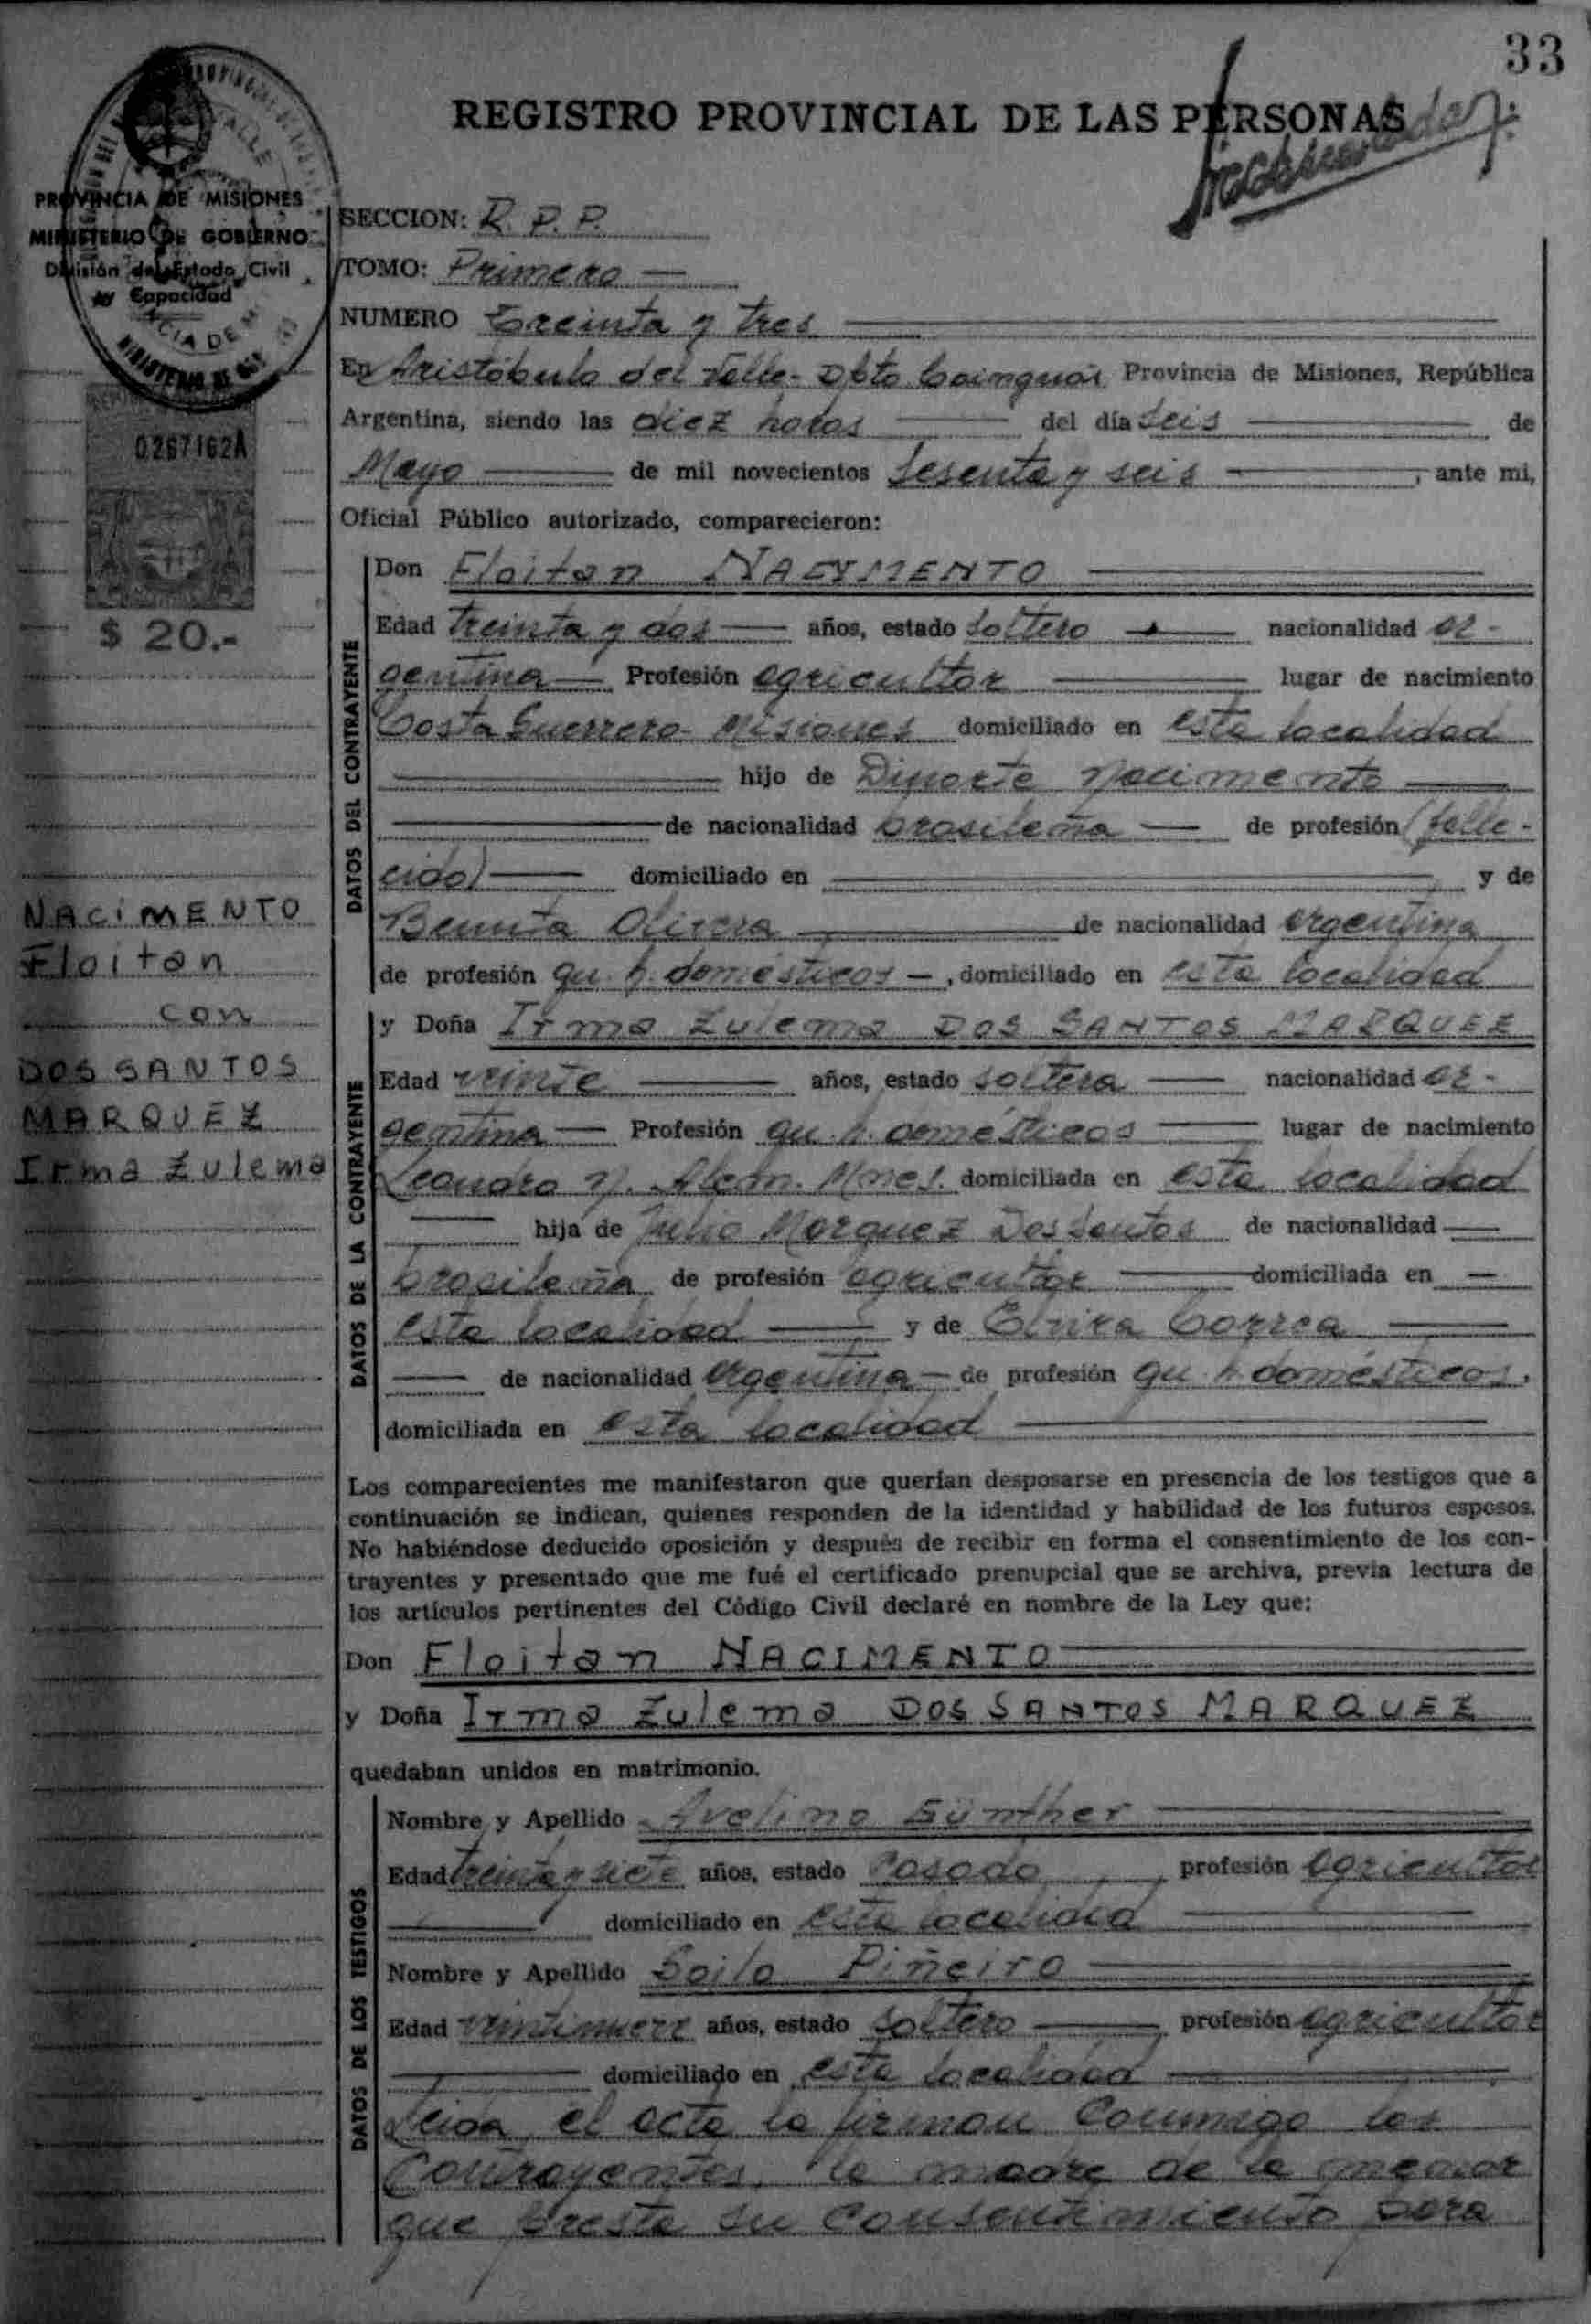 33
REGISTRO PROVINCIAL DE LAS PERSONAS
PROVINCIA DE MISIONES
MINISTERIO DE GOBIERNO
División del Estado Civil
y Capacidad
0267162A
$ 20.-
SECCION: R. P. P.
TOMO: Primero
NUMERO Treinta y tres
En Aristóbulo del Valle - Dpto Cainguás Provincia de Misiones, República
Argentina, siendo las diez horas del día seis de
Mayo de mil novecientos sesenta y seis, ante mi,
Oficial Público autorizado, comparecieron:
DATOS DEL CONTRAYENTE
Don Floitan NACIMENTO
Edad treinta y dos años, estado soltero nacionalidad ar-
gentina Profesión agricultor lugar de nacimiento
Costa Guerrero - Misiones domiciliado en esta localidad
hijo de Dinarte Nacimento
de nacionalidad brasileña de profesión (falle-
cido) domiciliado en y de
Benita Olivera de nacionalidad argentina
de profesión qu. h. domésticos, domiciliado en esta localidad
NACIMENTO
Floitan
con
DOS SANTOS
MARQUEZ
Irma Zulema
DATOS DE LA CONTRAYENTE
y Doña Irma Zulema DOS SANTOS MARQUEZ
Edad veinte años, estado soltera nacionalidad ar-
gentina Profesión qu. h. domésticos lugar de nacimiento
Leandro N. Alem. Mnes. domiciliada en esta localidad
hija de Julio Marquez Dos Santos de nacionalidad
brasileña de profesión agricultor domiciliada en
esta localidad y de Elvira Correa
de nacionalidad argentina de profesión qu. h. domésticos.
domiciliada en esta localidad
Los comparecientes me manifestaron que querían desposarse en presencia de los testigos que a
continuación se indican, quienes responden de la identidad y habilidad de los futuros esposos.
No habiéndose deducido oposición y después de recibir en forma el consentimiento de los con-
trayentes y presentado que me fué el certificado prenupcial que se archiva, previa lectura de
los artículos pertinentes del Código Civil declaré en nombre de la Ley que:
Don Floitan NACIMENTO
y Doña Irma Zulema DOS SANTOS MARQUEZ
quedaban unidos en matrimonio.
DATOS DE LOS TESTIGOS
Nombre y Apellido Avelino Günther
Edad treinta y siete años, estado casado profesión agricultor
domiciliado en esta localidad
Nombre y Apellido Soilo Piñeiro
Edad veintinueve años, estado soltero profesión agricultor
domiciliado en esta localidad
Leida el acta la firman conmigo los
Contrayentes, la madre de la menor
que presta su consentimiento para